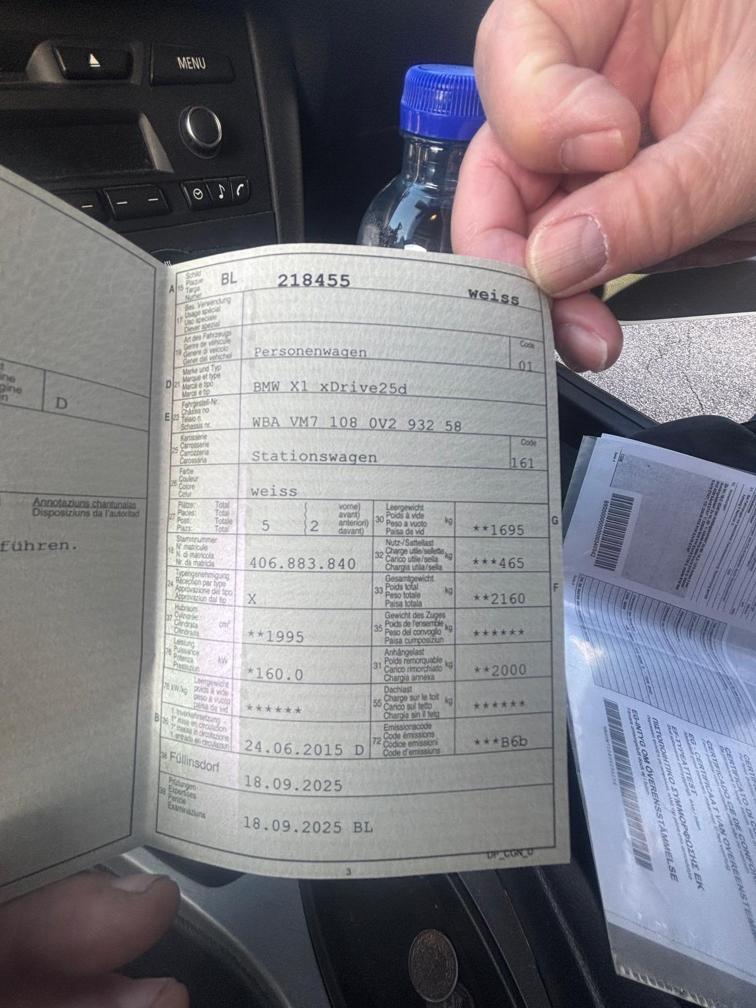 MENU
D
Annotaziuns chantunalas
Disposiziuns da l'autoritad
führen.
A 15 Schild Plaque Targa Numer
BL 218455 weiss
17 Bes. Verwendung Usage spécial Uso speciale Diever spezial
19 Art des Fahrzeugs Genre de véhicule Genere di veicolo Gener dal vehichel
Personenwagen
Code 01
D 21 Marke und Typ Marque et type Marca e tipo Marca e tip
BMW X1 xDrive25d
E 23 Fahrgestell-Nr. Châssis no Telaio n. Schassis nr.
WBA VM7 108 0V2 932 58
25 Karosserie Carrosserie Carrozzeria Carossaria
Stationswagen
Code 161
26 Farbe Couleur Colore Colur
weiss
27 Plätze: Total Places: Total Posti: Totale Plazs: Total
5 2
vorne) avant) anteriori) davant)
30 Leergewicht Poids à vide Peso a vuoto Paisa da vid kg
**1695 G
18 Stammnummer N° matricule N. di matricola Nr. da matricla
406.883.840
32 Nutz-/Sattellast Charge utile/sellette Carico utile/sella Chargia utila/sella kg
***465
24 Typengenehmigung Réception par type Approvazione del tipo Approvaziun dal tip
X
33 Gesamtgewicht Poids total Peso totale Paisa totala kg
**2160 F
37 Hubraum Cylindrée Cilindrata Cilindrada cm³
**1995
35 Gewicht des Zuges Poids de l'ensemble Peso del convoglio Paisa cumposiziun kg
******
76 Leistung Puissance Potenza Prestaziun kW
*160.0
31 Anhängelast Poids remorquable Carico rimorchiato Chargia annexa kg
**2000
78 kW/kg Leergewicht poids à vide peso a vuoto paisa da vid
******
55 Dachlast Charge sur le toit Carico sul tetto Chargia sin il tetg kg
******
B 36 1. Inverkehrsetzung 1re mise en circulation 1a messa in circolazione 1. entrada en circulaziun
24.06.2015 D
72 Emissionscode Code émissions Codice emissioni Code d'emissiuns
***B6b
38 Füllinsdorf
18.09.2025
39 Prüfungen Expertises Perizie Examinaziuns
18.09.2025 BL
3
EG-INTYG OM ÖVERENSSTÄMMELSE